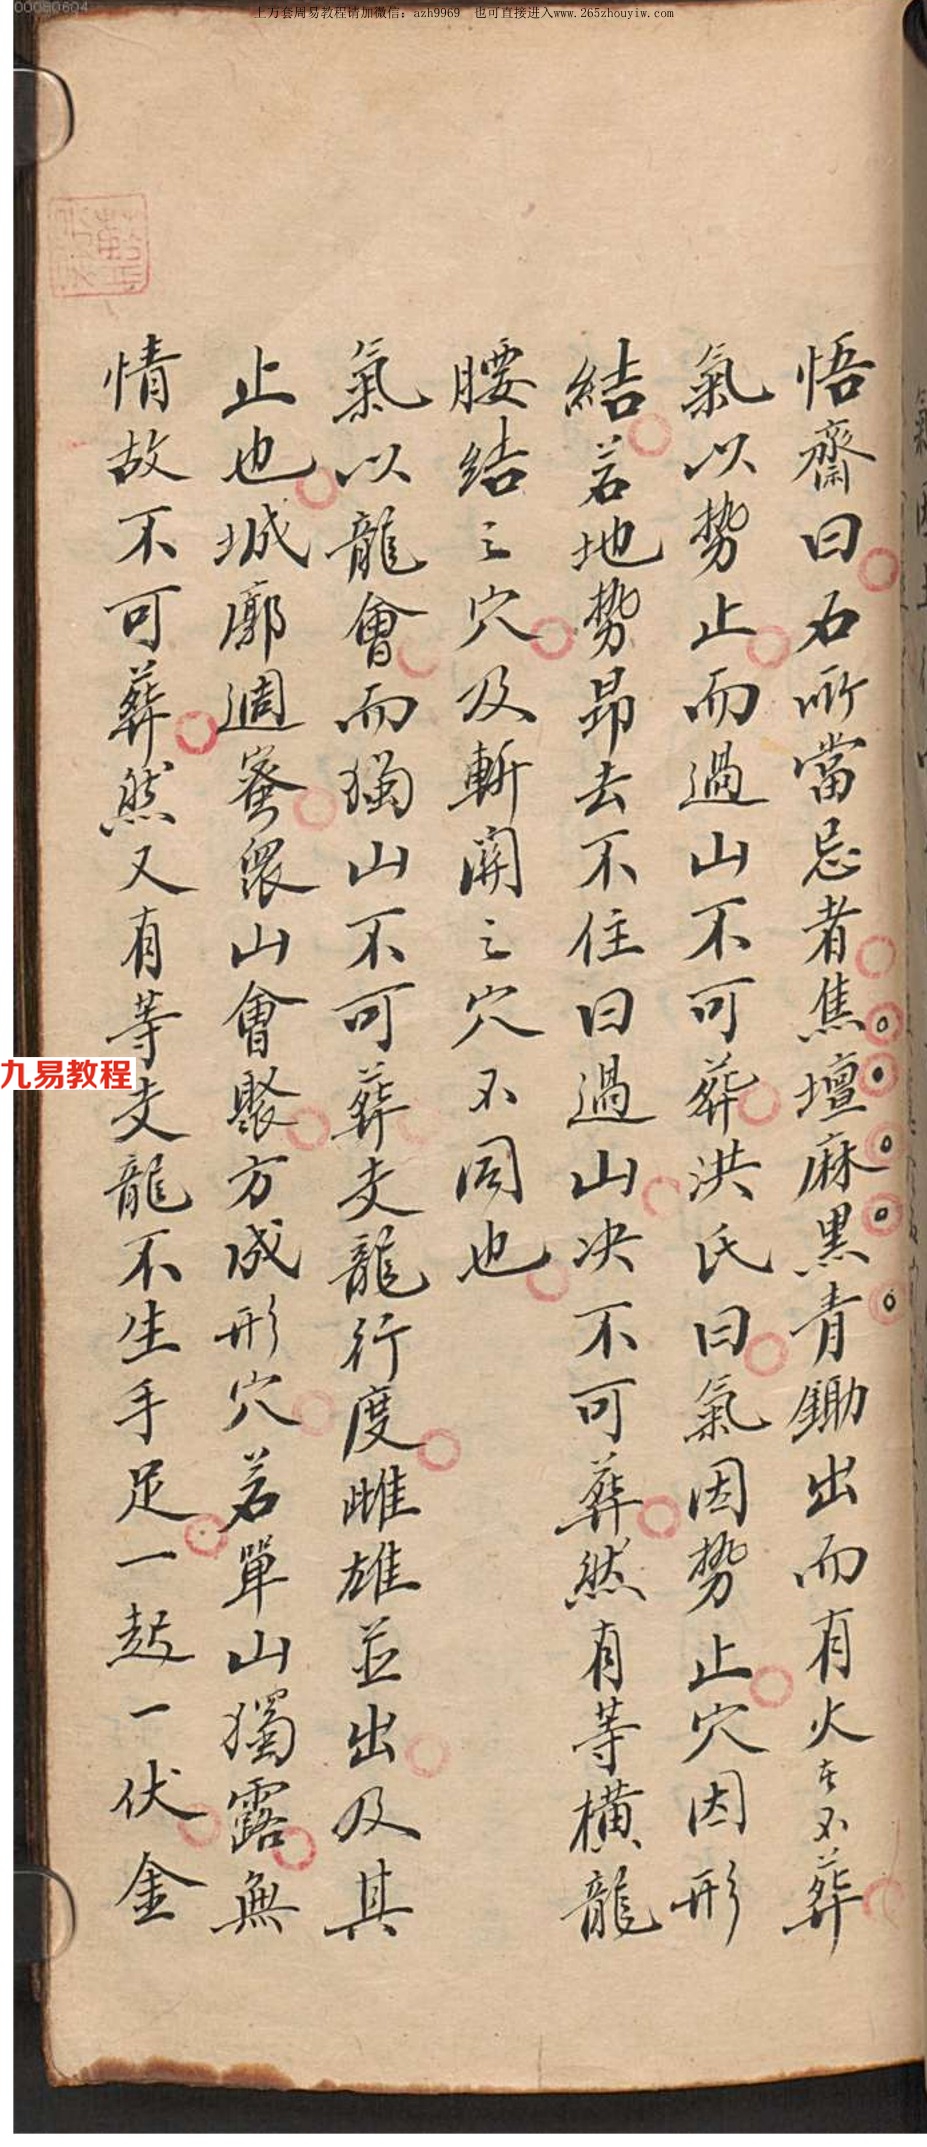 00080604
上万套周易教程请加微信：azh9969 也可直接进入www.265zhouyiw.com
悟齋曰石所當忌者焦壇麻黑青鋤出而有火不葬
氣以势止而過山不可葬洪氏曰氣因势止穴因形
結若地势昂去不住曰過山决不可葬然有等橫龍
腰結之穴及斬関之穴不同也
氣以龍會而獨山不可葬支龍行度雌雄並出及其
止也城廓週密眾山會聚方成形穴若單山獨露無
情故不可葬然又有等支龍不生手足一起一伏金
九易教程